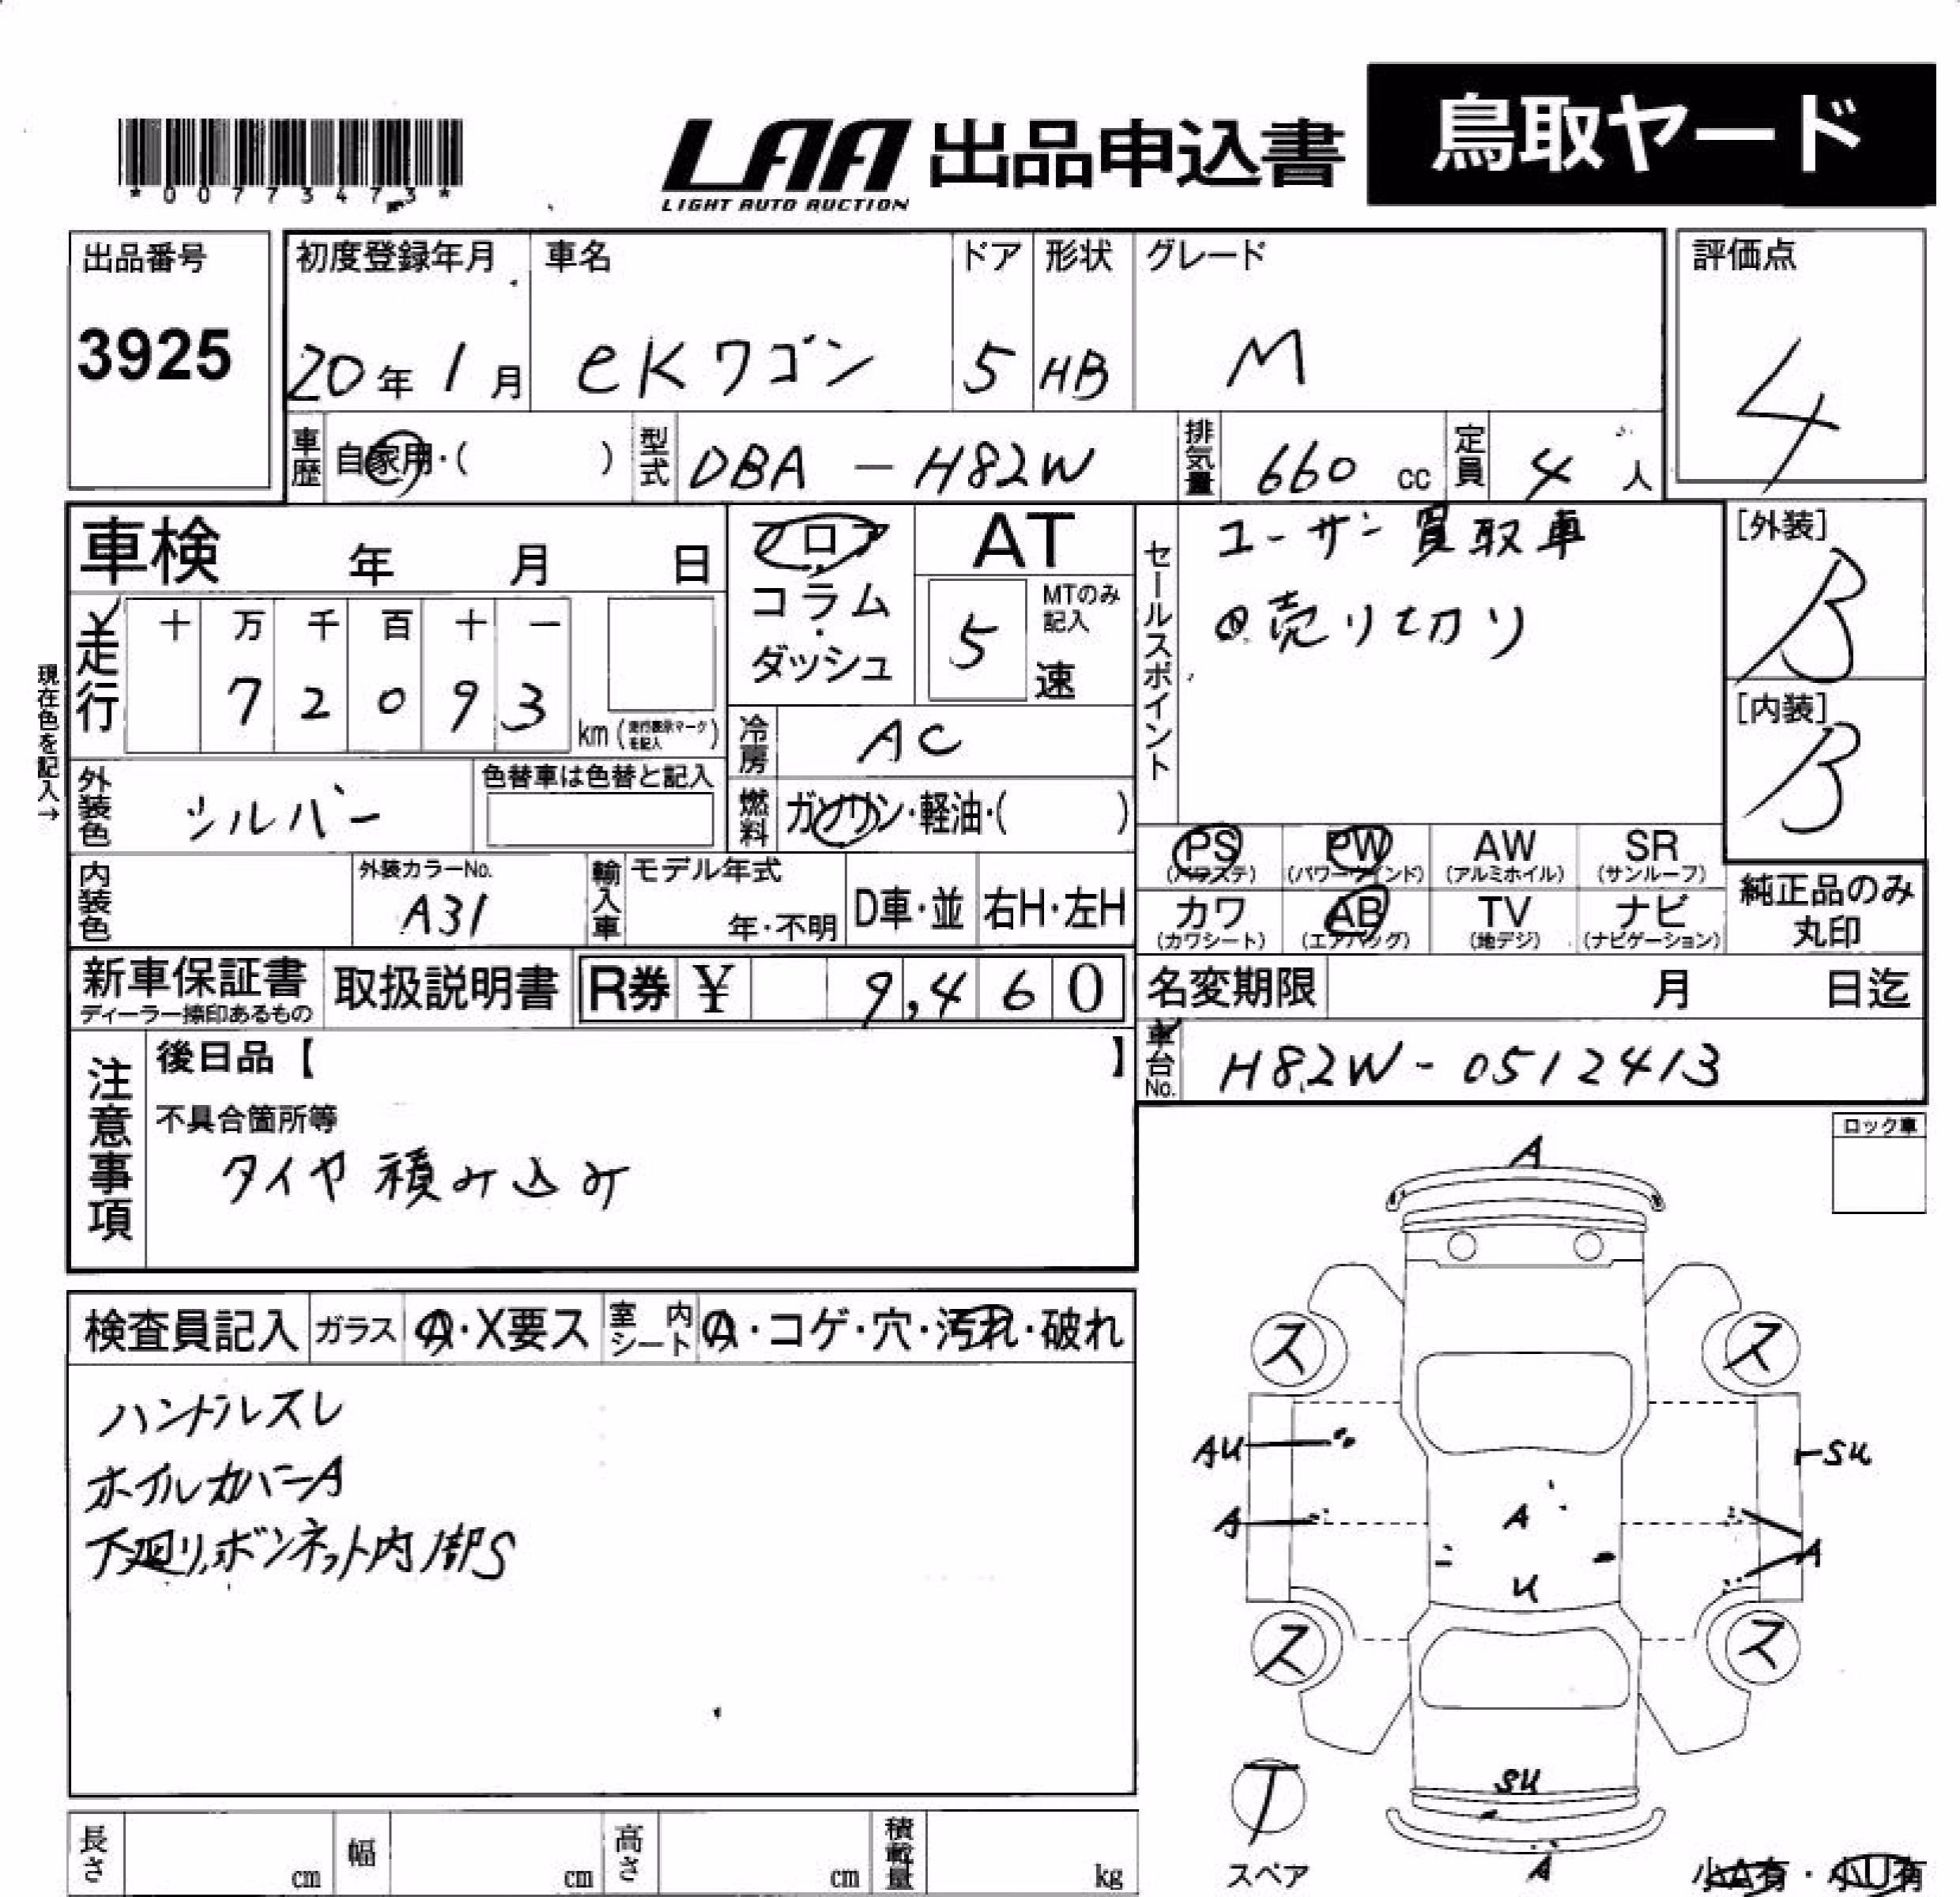 *00773473*
LAA 出品申込書 鳥取ヤード
LIGHT AUTO AUCTION
出品番号 初度登録年月 車名 ドア 形状 グレード 評価点
3925 20年1月 eKワゴン 5 HB M 4
車歴 自家用・( ) 型式 DBA-H82W 排気量 660 cc 定員 4人
車検 年 月 日 フロア AT セールスポイント ユーザー買取車 [外装]
コラム・ MTのみ記入 売り切り B
ダッシュ 5 速
現在色を記入→
走行 十 万 千 百 十 一
7 2 0 9 3 km (走行表示マークを記入) [内装]
冷房 AC B
外装色 シルバー 色替車は色替と記入
燃料 ガソリン・軽油・( )
PS (パワステ) PW (パワーウインド) AW (アルミホイル) SR (サンルーフ)
内装色 外装カラーNo. A31 輸入車 モデル年式 年・不明 D車・並 右H・左H
カワ (カワシート) AB (エアバッグ) TV (地デジ) ナビ (ナビゲーション) 純正品のみ丸印
新車保証書 ディーラー捺印あるもの 取扱説明書 R券 ¥ 9,460 名変期限 月 日迄
車台No. H82W-0512413
注意事項 後日品【 】
不具合箇所等
タイヤ積み込み
ロック車
検査員記入 ガラス A・X要ス 室内シート A・コゲ・穴・汚れ・破れ
ハンドルスレ
ホイルカバーA
下廻り、ボンネット内部S
A
ス ス
AU SU
A A A
U
ス ス
SU
T
スペア A 小A有・小U有
長さ cm 幅 cm 高さ cm 積載量 kg